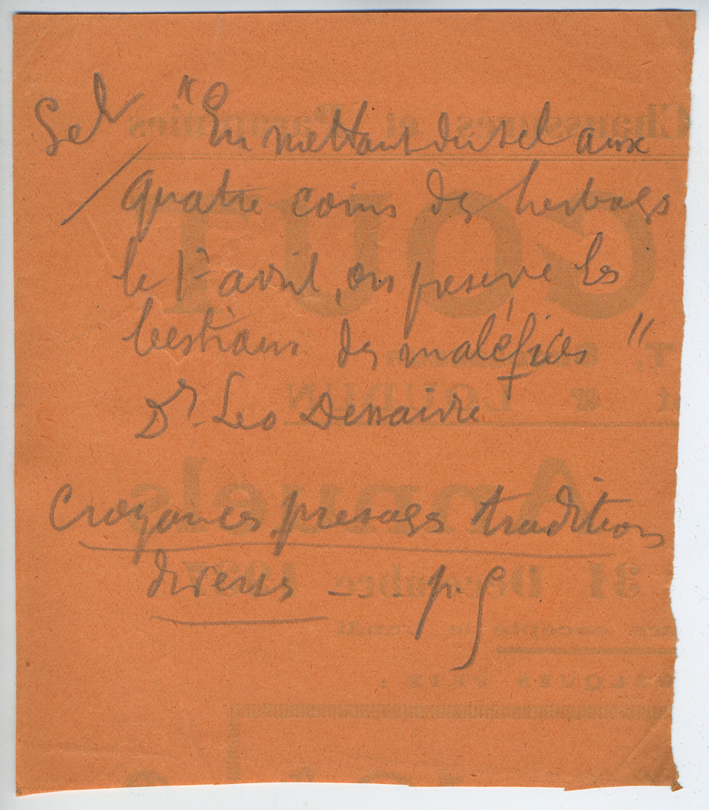 Sel "En mettant du sel aux
quatre coins des herbages
le 1er avril, on préserve les
bestiaux des maléfices"
Dr Leo Desaivre
Croyances, presages tradition
diverses - - p. 9